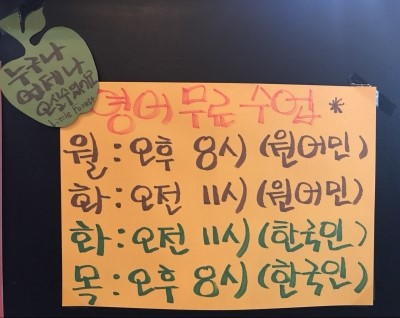 누구나
언제나
오실수 있어요
Little Forest
영어 무료 수업 *
월 : 오후 8시 (원어민)
화 : 오전 11시 (원어민)
화 : 오전 11시 (한국인)
목 : 오후 8시 (한국인)